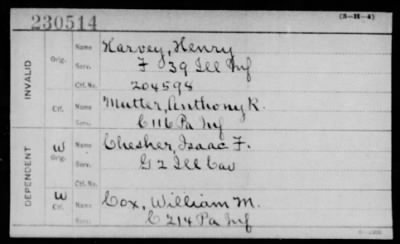 230514 (3-H-4)
INVALID
Orig.
Name Harvey, Henry
Serv. F 39 Ill Inf
Ctf. No. 204598
Ctf.
Name Mutter, Anthony K.
Serv. C 116 Pa Inf
DEPENDENT
W Orig.
Name Chesher, Isaac F.
Serv. G 2 Ill Cav
Ctf. No.
W Ctf.
Name Cox, William M.
Serv. C 214 Pa Inf